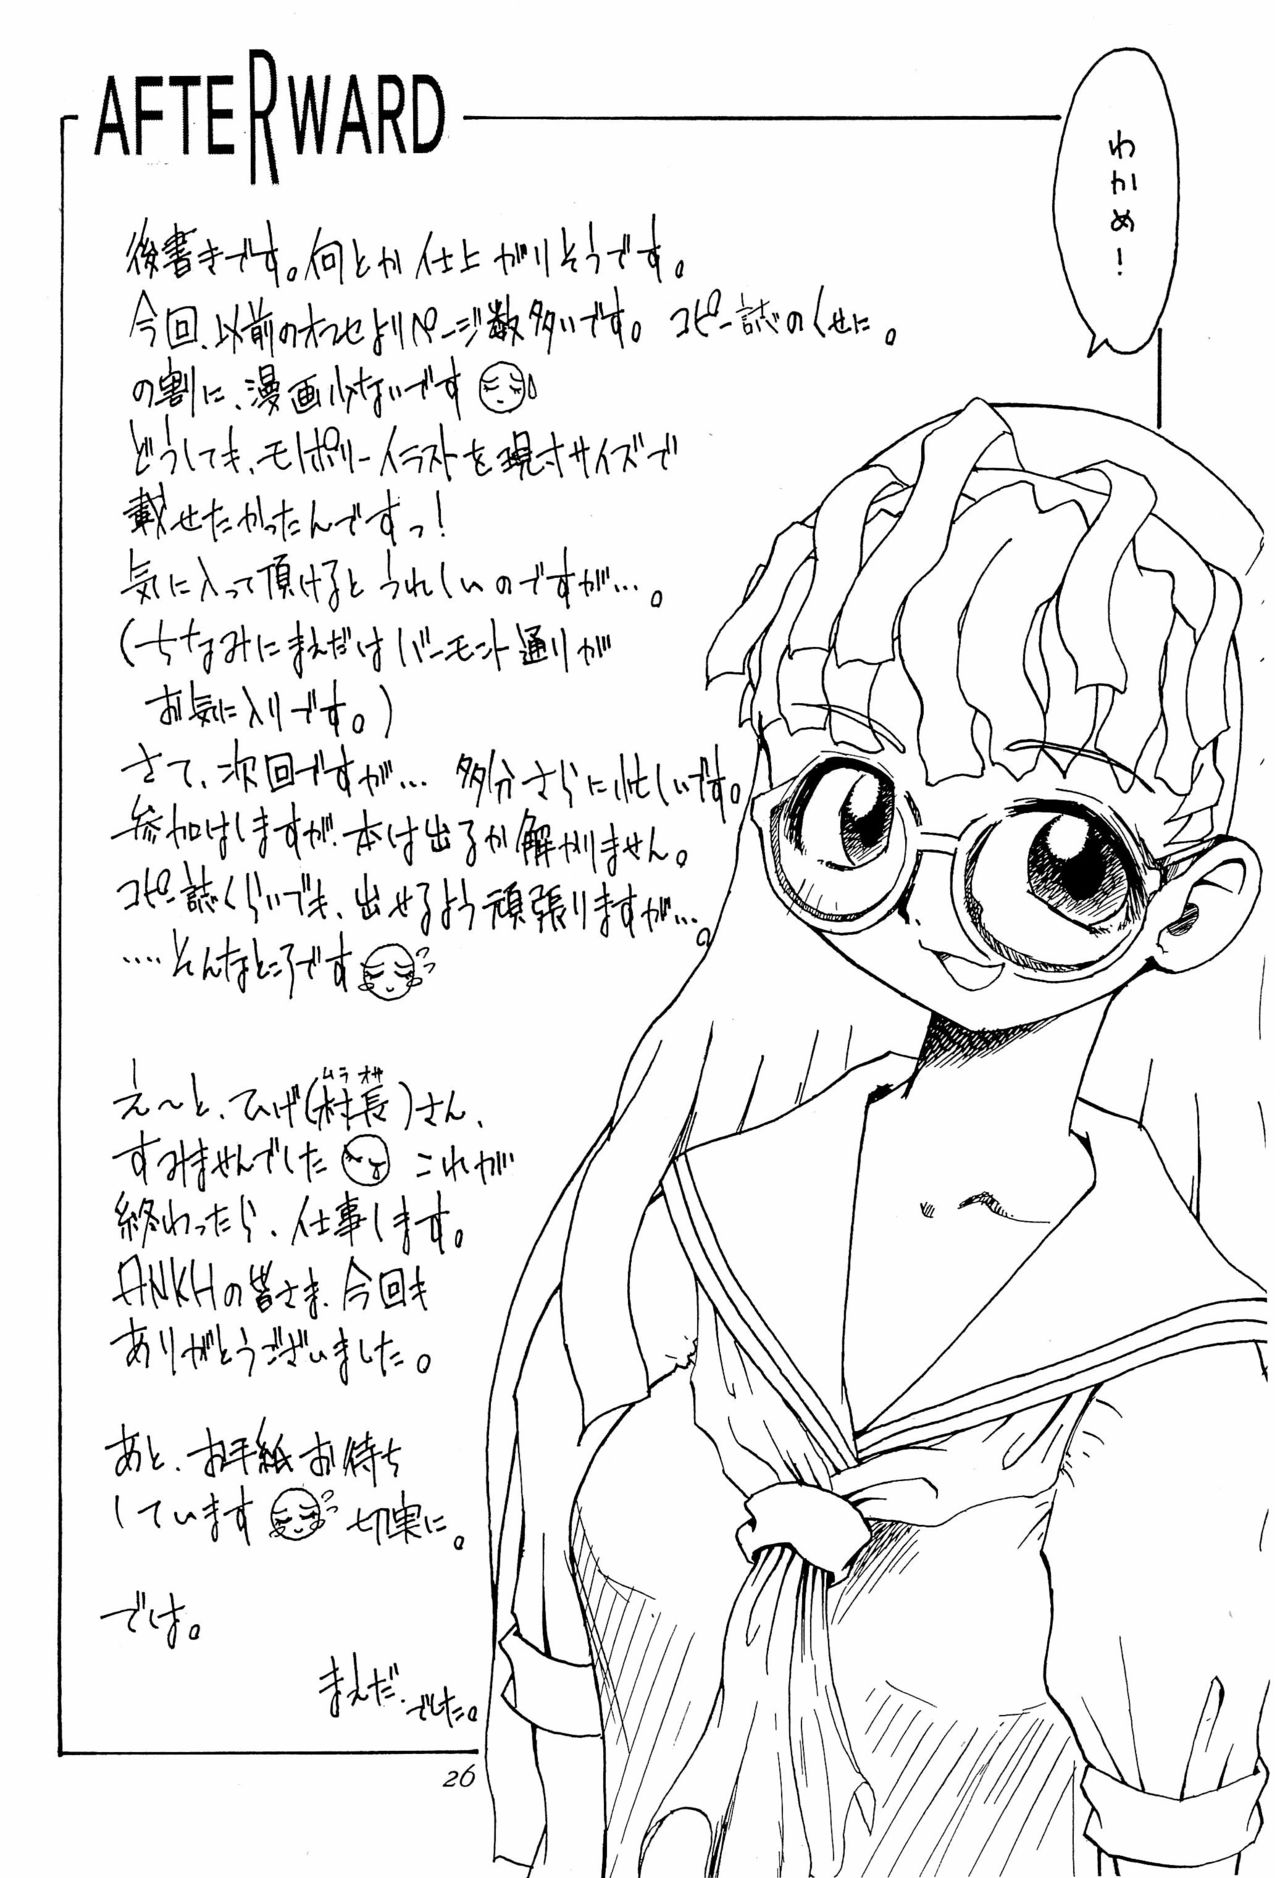 AFTERWARD
わかめ!
後書きです。何とか仕上がりそうです。
今回、以前のオフセよりページ数多いです。コピー誌のくせに。
の割に、漫画少ないです
どうしても、モノポリーイラストを現寸サイズで
載せたかったんですっ!
気に入って頂けるとうれしいのですが…。
(ちなみにまえだはバーモント通りが
お気に入りです。)
さて、次回ですが… 多分さらに忙しいです。
参加はしますが、本は出るか解かりません。
コピー誌くらいでも、出せるよう頑張りますが…。
‥‥そんなところです
え~と、ひげ(村長)さん、
ムラオサ
すみませんでした これが
終わったら、仕事します。
ANKHの皆さま、今回も
ありがとうございました。
あと、お手紙お待ち
しています 切実に。
では。
まえだ.でした。
26